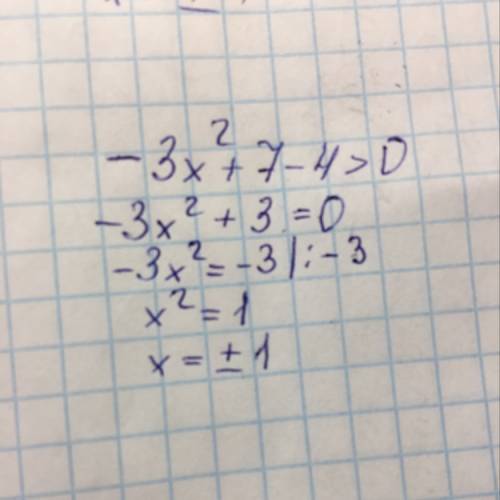 -3x² + 7 - 4 > 0
-3x² + 3 = 0
-3x² = -3 | : -3
x² = 1
x = ± 1